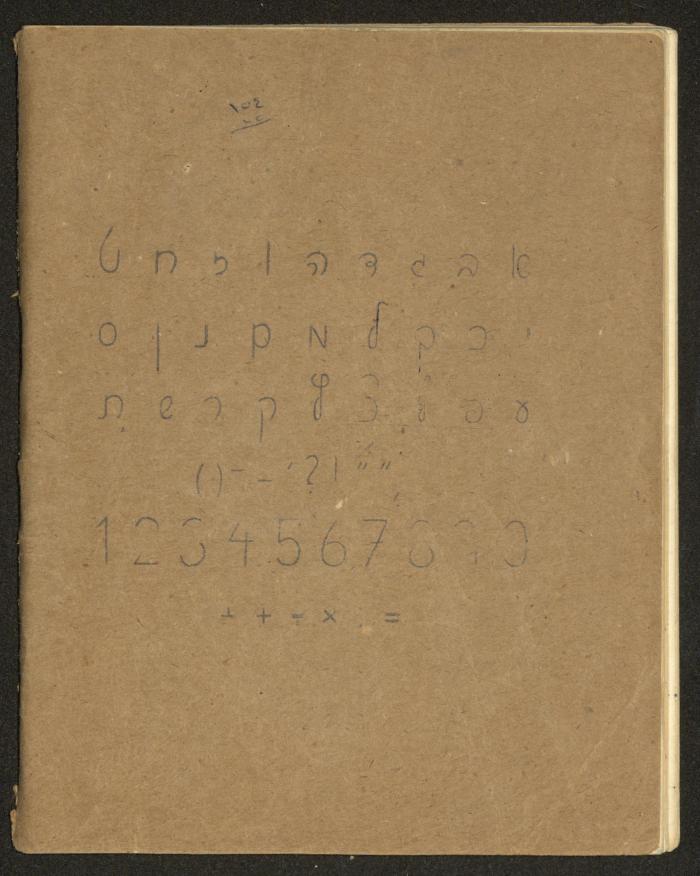 א ב ג ד ה ו ז ח ט
י כ ך ל מ ם נ ן ס
ע פ ק ר ש ת
" " ! ? ' - – ( )
1 2 3 4 5 6 7 8 9 0
+ + = × : =